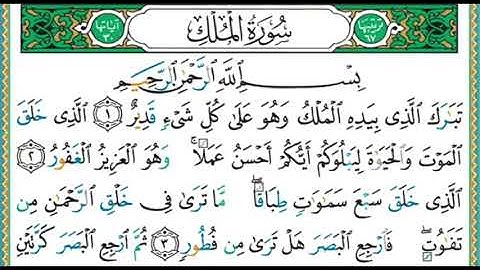 ترتيبها ٦٧
سُورَةُ ٱلْمُلْكِ
آياتها ٣٠
بِسْمِ ٱللَّهِ ٱلرَّحْمَٰنِ ٱلرَّحِيمِ
تَبَٰرَكَ ٱلَّذِى بِيَدِهِ ٱلْمُلْكُ وَهُوَ عَلَىٰ كُلِّ شَىْءٍ قَدِيرٌ ١ ٱلَّذِى خَلَقَ
ٱلْمَوْتَ وَٱلْحَيَوٰةَ لِيَبْلُوَكُمْ أَيُّكُمْ أَحْسَنُ عَمَلًا ۚ وَهُوَ ٱلْعَزِيزُ ٱلْغَفُورُ ٢
ٱلَّذِى خَلَقَ سَبْعَ سَمَٰوَٰتٍ طِبَاقًا ۖ مَّا تَرَىٰ فِى خَلْقِ ٱلرَّحْمَٰنِ مِن
تَفَٰوُتٍ ۖ فَٱرْجِعِ ٱلْبَصَرَ هَلْ تَرَىٰ مِن فُطُورٍ ٣ ثُمَّ ٱرْجِعِ ٱلْبَصَرَ كَرَّتَيْنِ